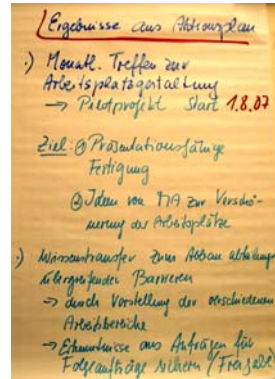 Ergebnisse aus Aktionsplan
·) Monatl. Treffen zur
Arbeitsplatzgestaltung
→ Pilotprojekt Start 1.8.07
Ziel: ① Präsentationsfähige
Fertigung
② Ideen von MA zur Verschö-
nerung der Arbeitsplätze
·) Wissenstransfer zum Abbau abteilungs-
übergreifender Barrieren
→ durch Vorstellung der verschiedenen
Arbeitsbereiche
→ Erkenntnisse aus Aufträgen für
Folgeaufträge sichern (Freigabe)